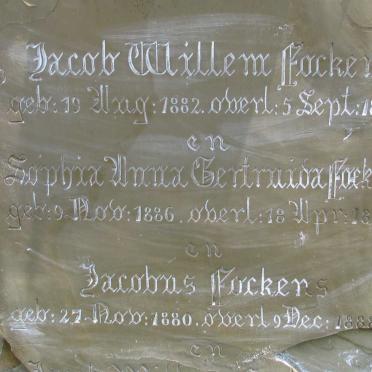 Jacob Willem Focker
geb: 19 Aug: 1882. overl: 5 Sept: 18
en
Sophia Anna Gertruida Fock
geb: 9 Nov: 1886. overl: 18 Apr: 18
en
Jacobus Fockers
geb: 27 Nov: 1880. overl 9 Dec: 1888
en